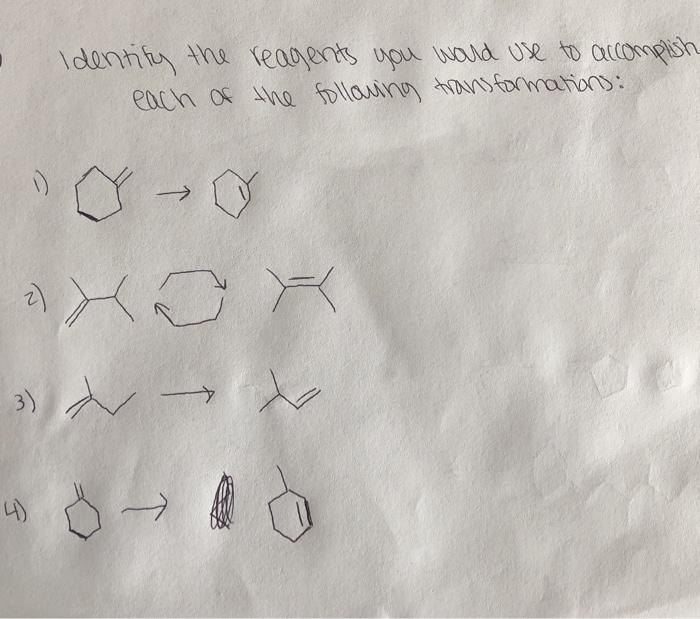 Identify the reagents you would use to accomplish
each of the following transformations:
1)
2)
3)
4)